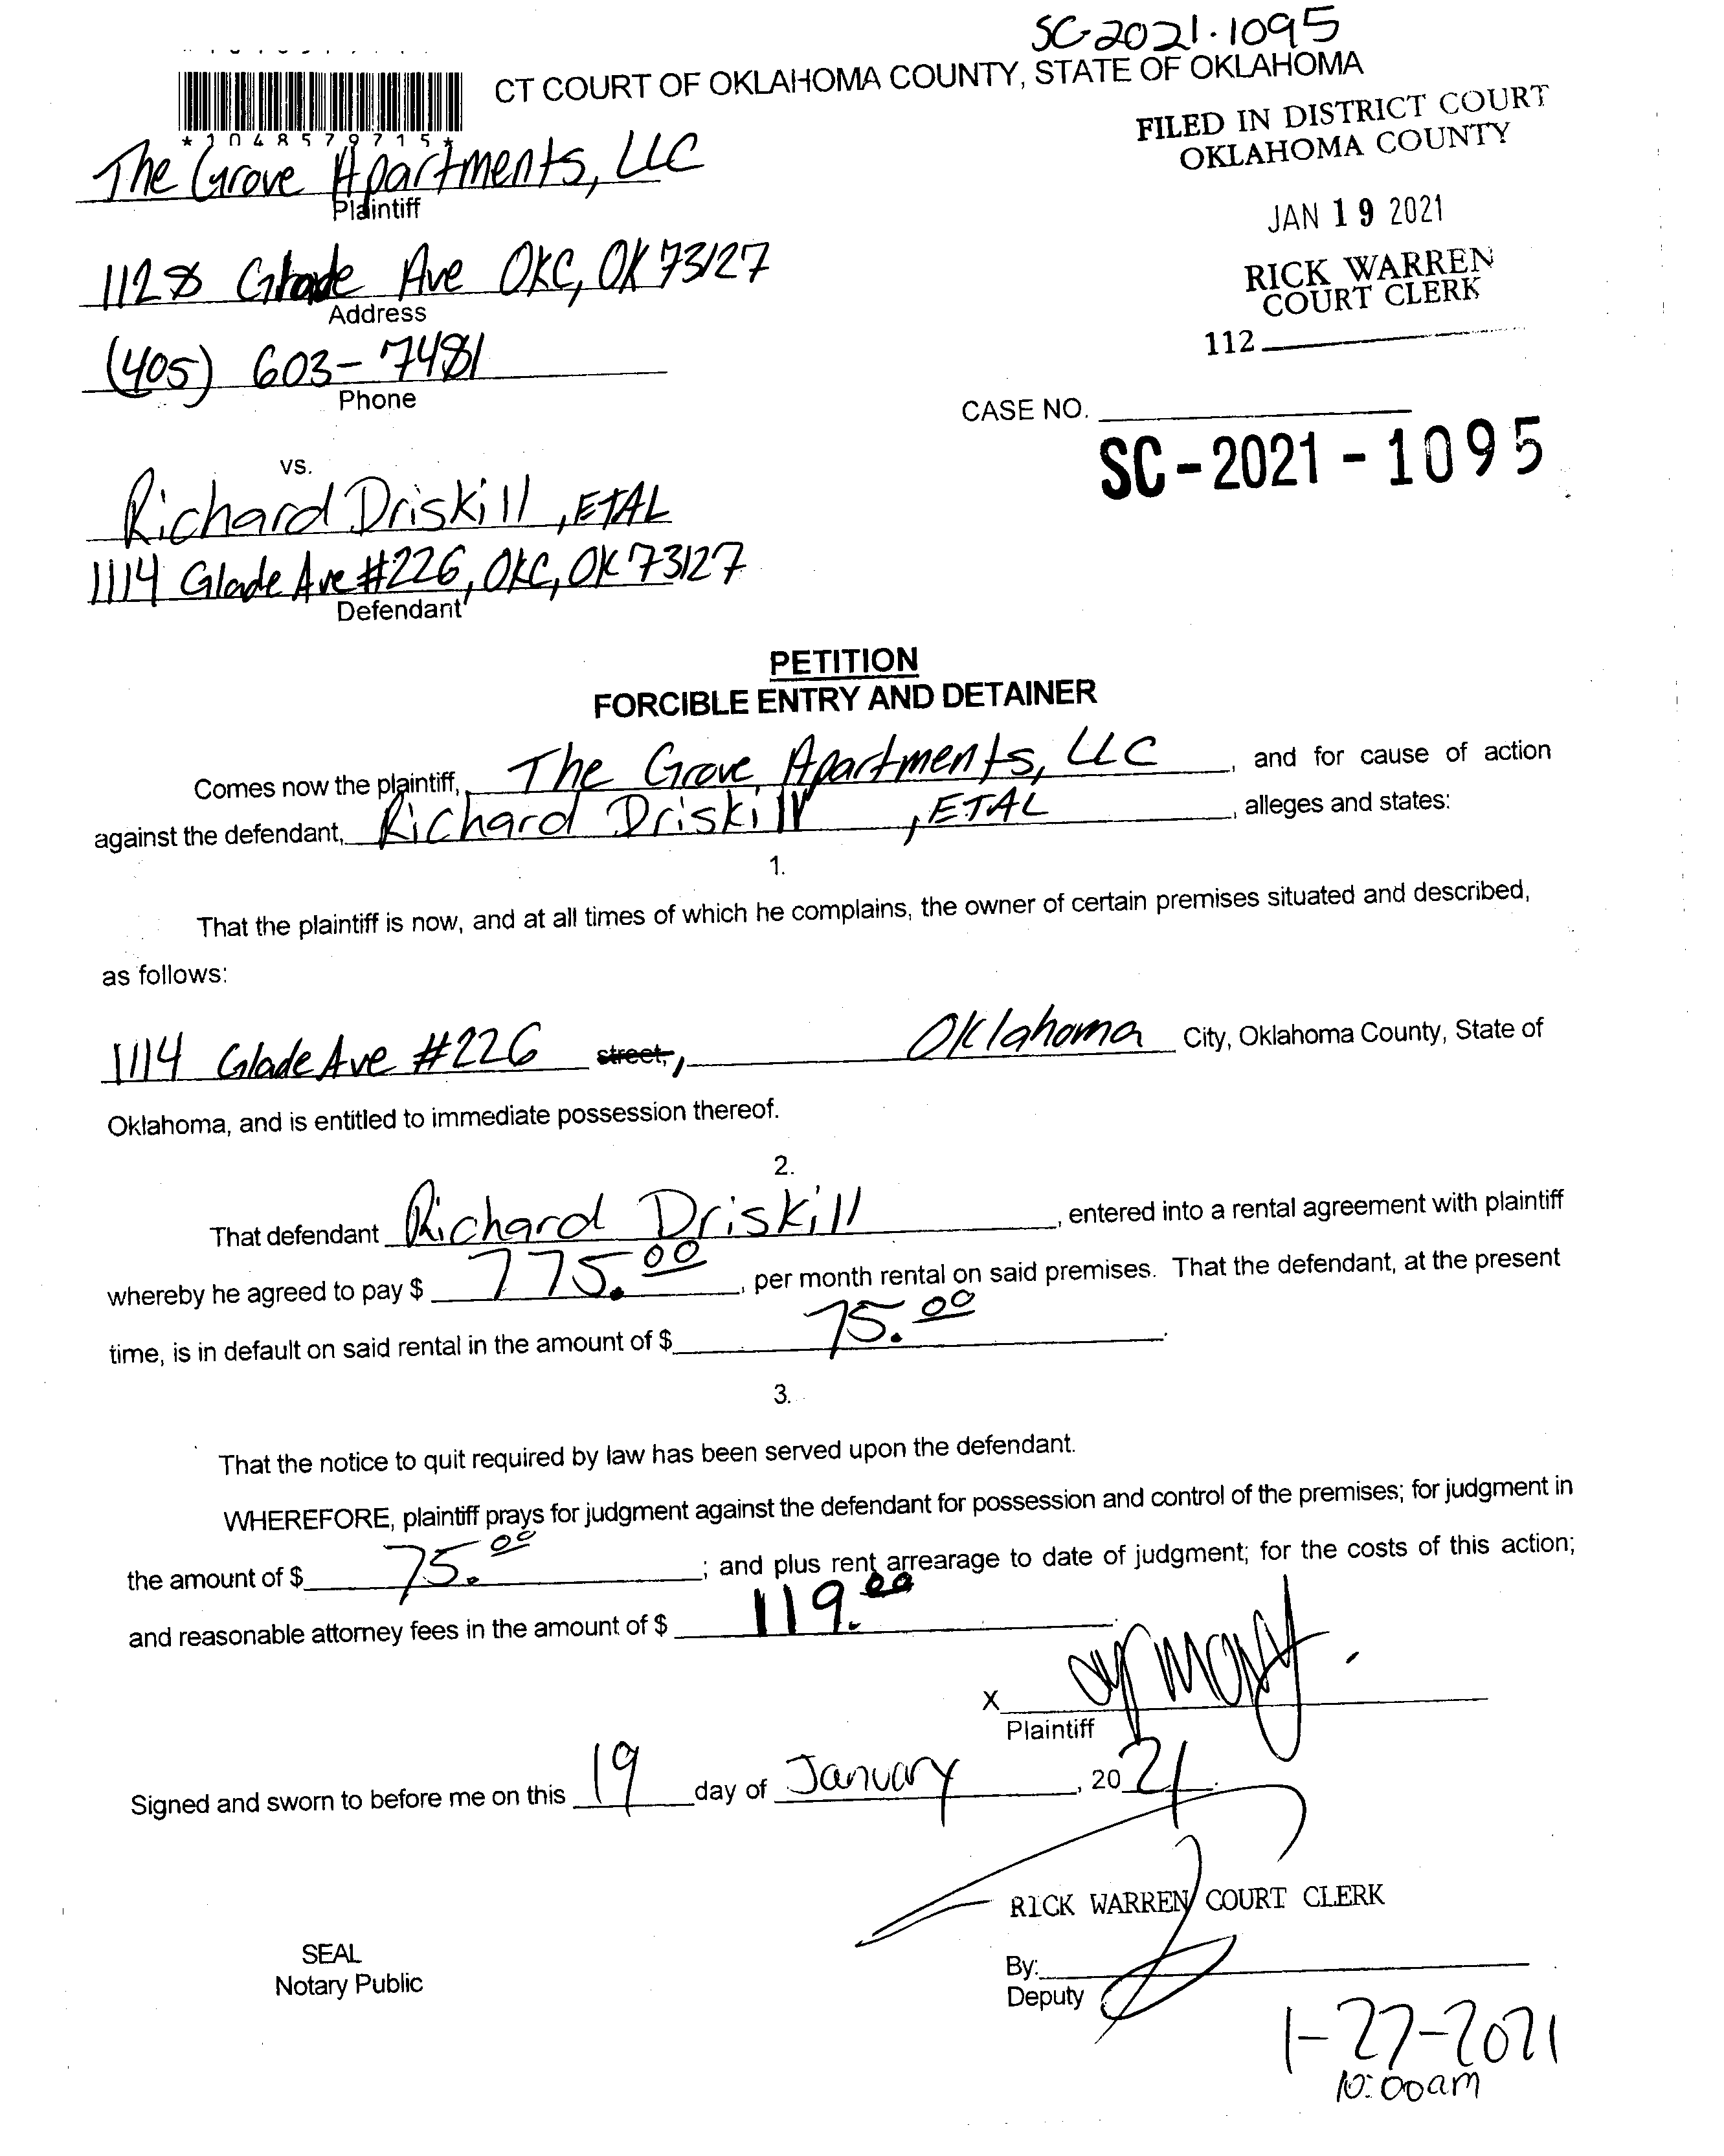 SC-2021-1095
CT COURT OF OKLAHOMA COUNTY, STATE OF OKLAHOMA
*1048579715*
FILED IN DISTRICT COURT
OKLAHOMA COUNTY
JAN 19 2021
RICK WARREN
COURT CLERK
112
The Grove Apartments, LLC
Plaintiff
1128 Glade Ave OKC, OK 73127
Address
(405) 603-7481
Phone
CASE NO.
SC-2021-1095
vs.
Richard Driskill, ETAL
1114 Glade Ave #226, OKC, OK 73127
Defendant
PETITION
FORCIBLE ENTRY AND DETAINER
Comes now the plaintiff, The Grove Apartments, LLC, and for cause of action
against the defendant, Richard Driskill, ETAL, alleges and states:
1.
That the plaintiff is now, and at all times of which he complains, the owner of certain premises situated and described,
as follows:
1114 Glade Ave #226 street,, Oklahoma City, Oklahoma County, State of
Oklahoma, and is entitled to immediate possession thereof.
2.
That defendant Richard Driskill, entered into a rental agreement with plaintiff
whereby he agreed to pay $ 775.00, per month rental on said premises. That the defendant, at the present
time, is in default on said rental in the amount of $ 75.00.
3.
That the notice to quit required by law has been served upon the defendant.
WHEREFORE, plaintiff prays for judgment against the defendant for possession and control of the premises; for judgment in
the amount of $ 75.00; and plus rent arrearage to date of judgment; for the costs of this action;
and reasonable attorney fees in the amount of $ 119.00
X
Plaintiff
Signed and sworn to before me on this 19 day of January, 2021.
RICK WARREN COURT CLERK
SEAL
Notary Public
By:
Deputy
1-27-2021
10:00am